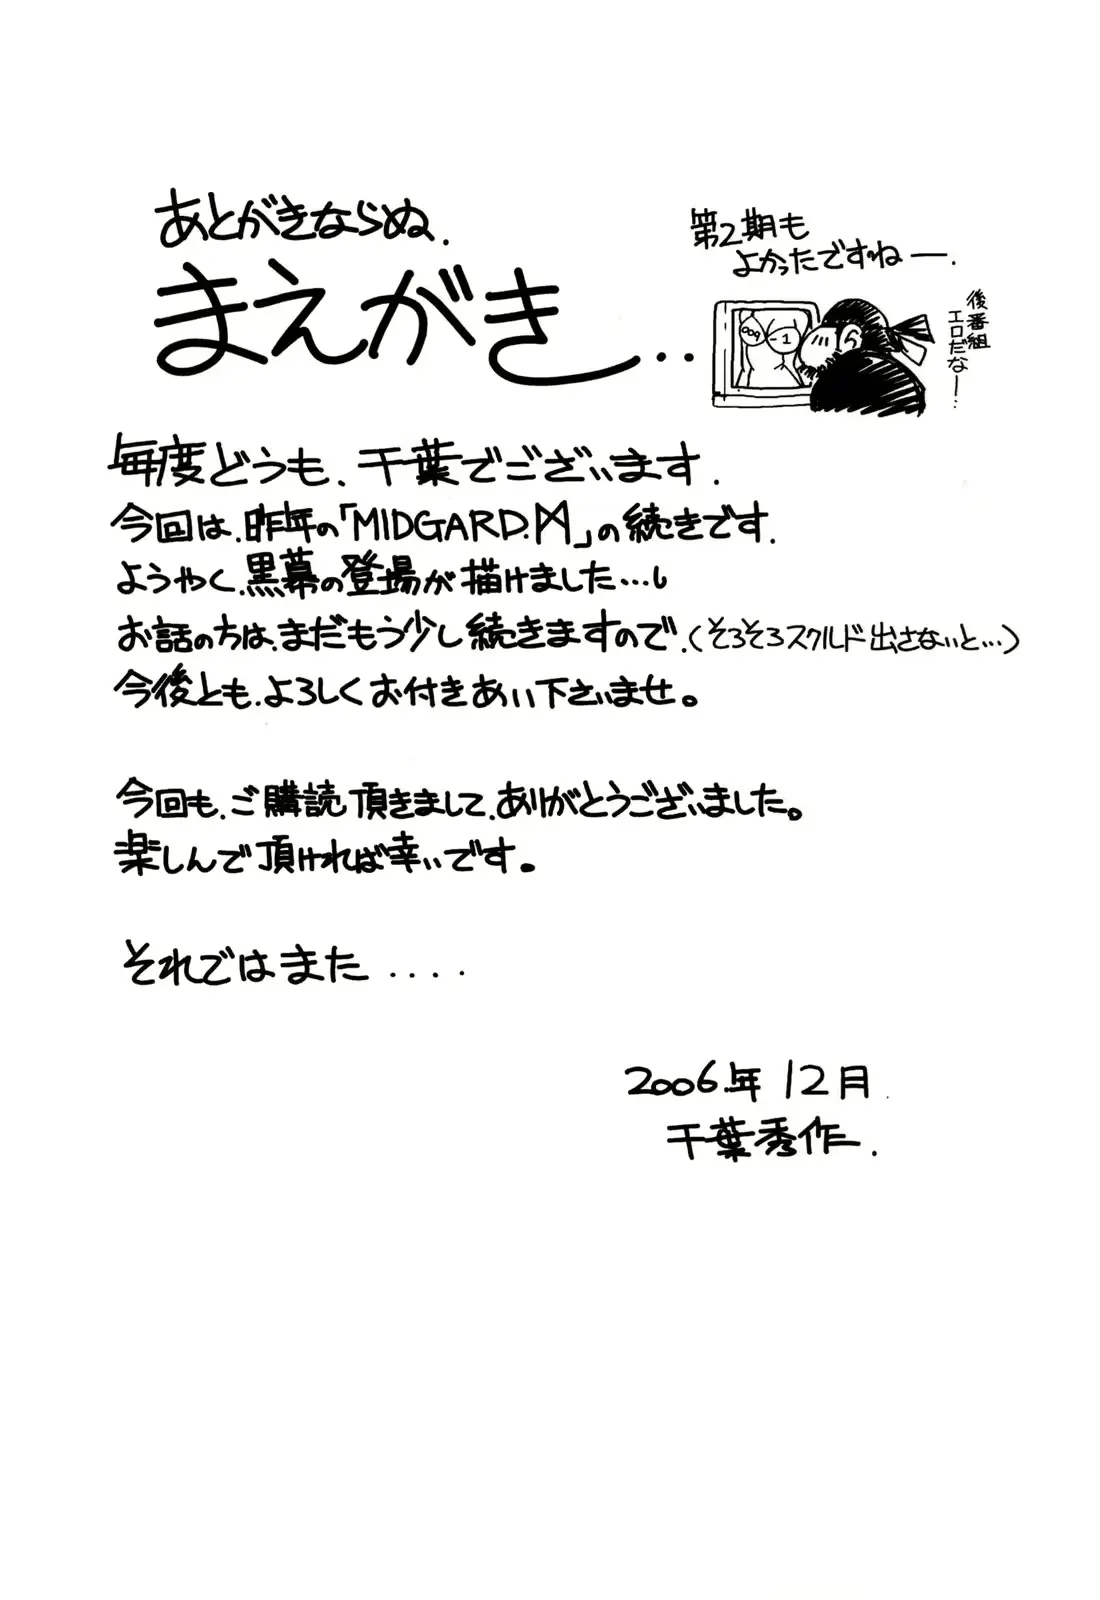 あとがきならぬ.
まえがき...
第2期も
よかったですねー.
後番組
エロだなー..
009
-1
毎度どうも、千葉でございます.
今回は、昨年の「MIDGARD.M」の続きです.
ようやく、黒幕の登場が描けました…し
お話の方は、まだもう少し続きますので、(そろそろスクルド出さないと…)
今後とも、よろしくお付きあい下さいませ。
今回も、ご購読頂きまして、ありがとうございました。
楽しんで頂ければ幸いです。
それではまた....
2006年12月
千葉秀作.